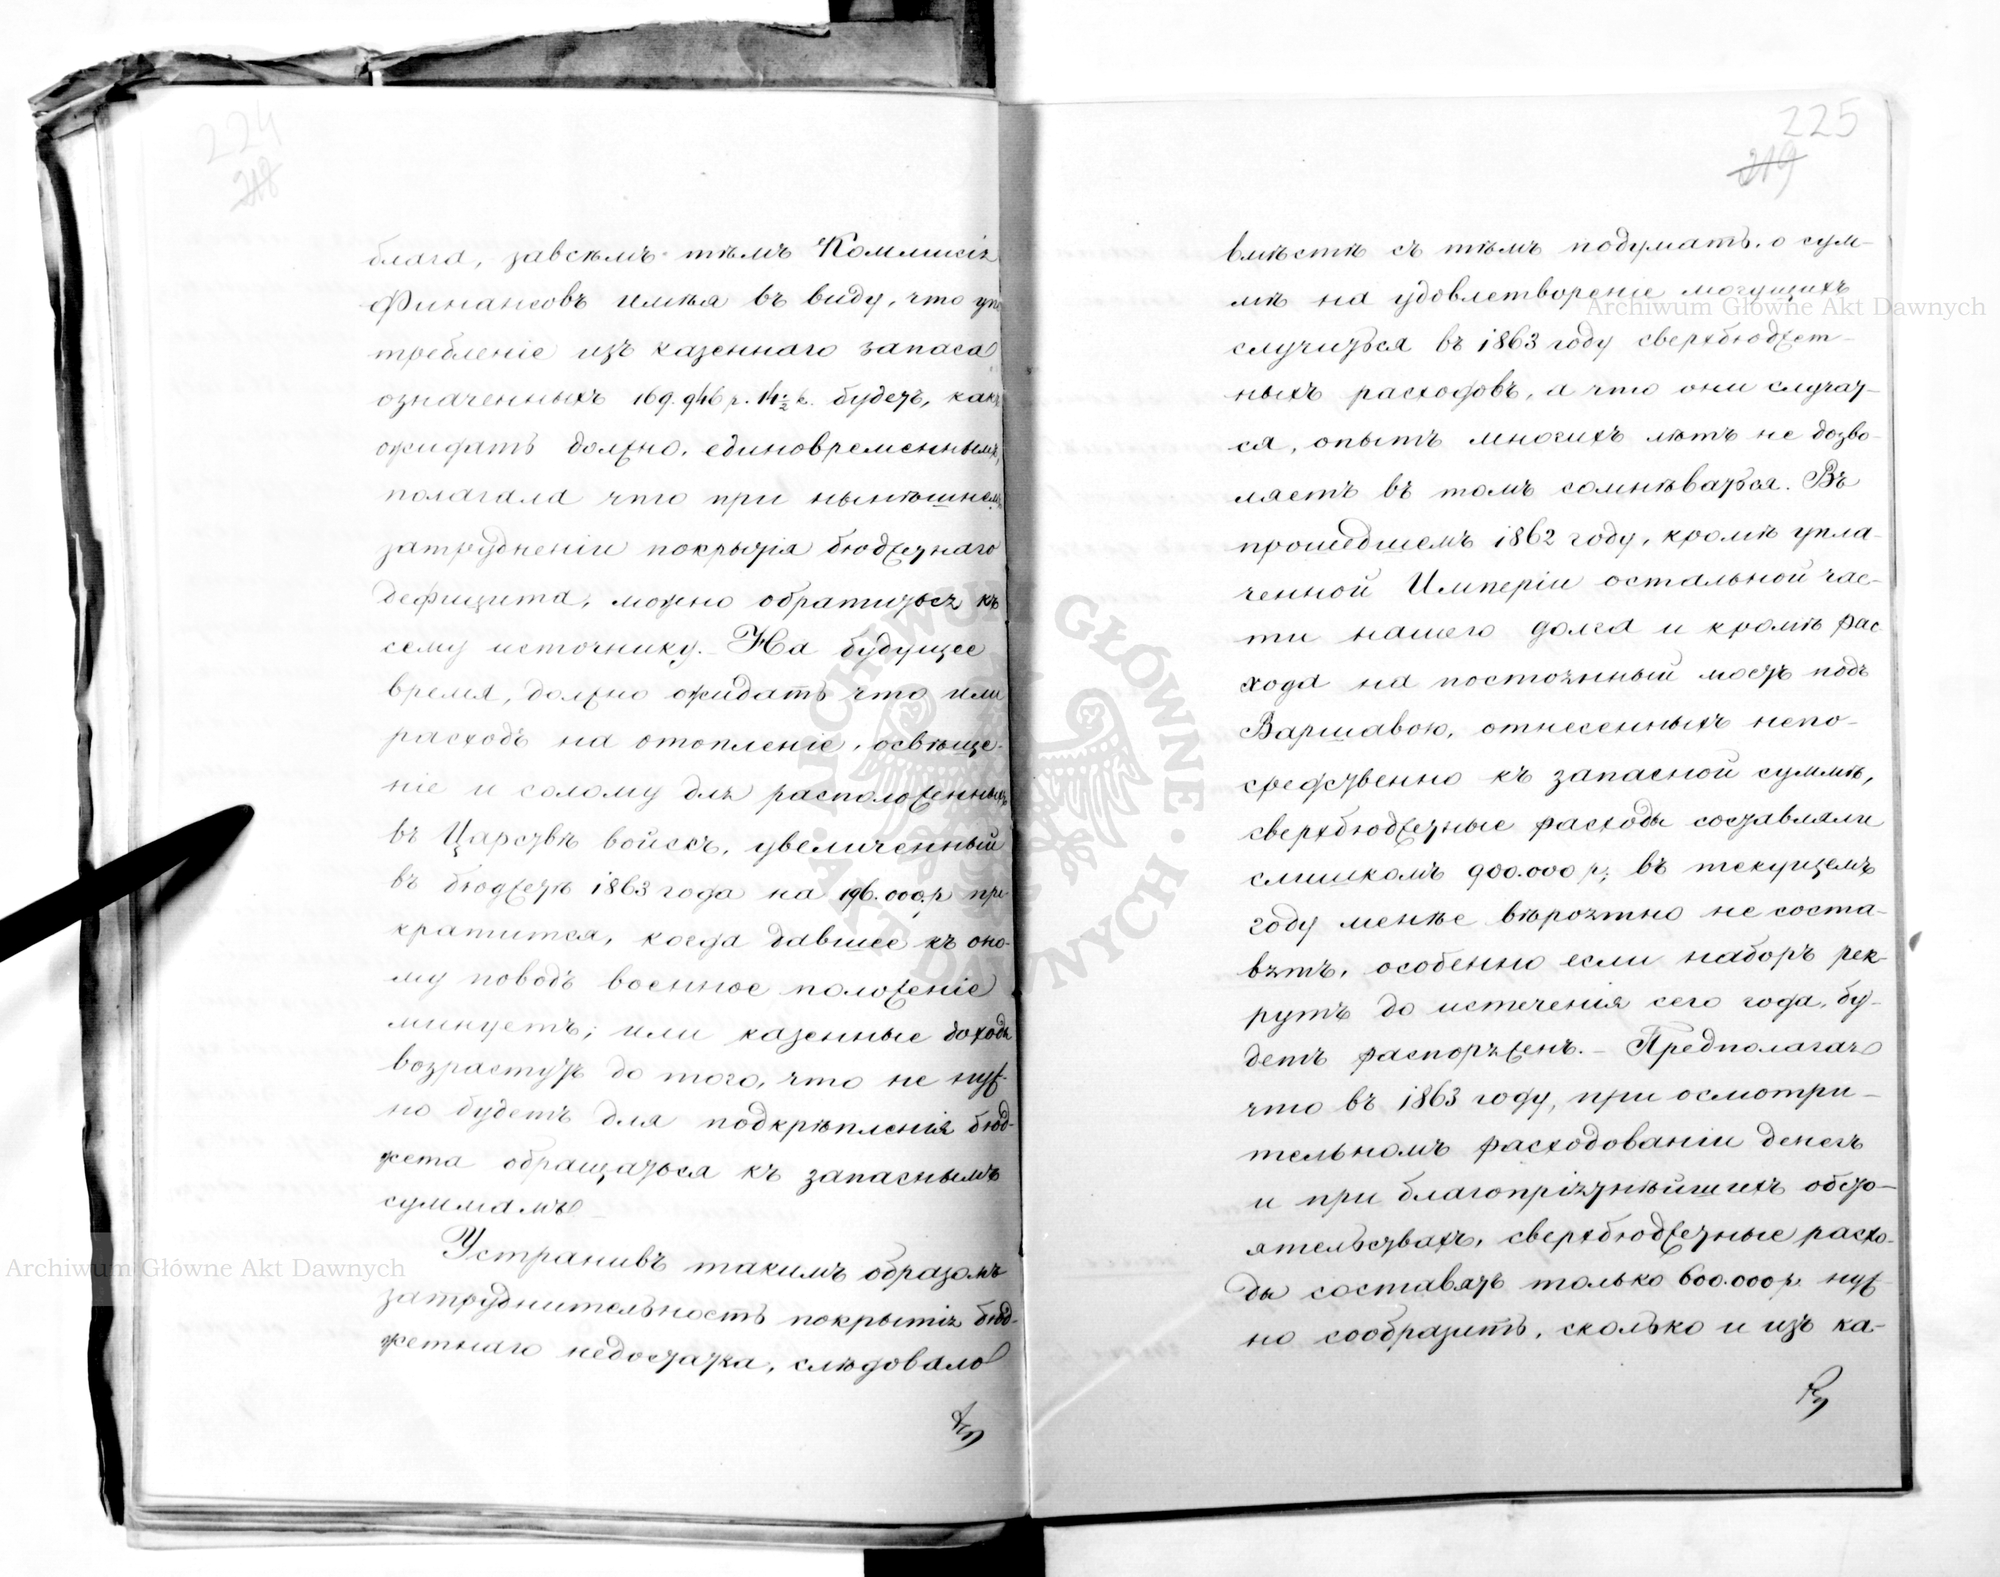 224
218
блага, завсѣмъ тѣмъ Коммисія
Финансовъ имѣя въ виду, что упо
требленіе изъ казеннаго запаса
означенныхъ 169.946 р. 14½ к. будетъ, какъ
ожидать должно, единовременнымъ,
полагала что при нынѣшнемъ
затрудненіи покрытія бюджетнаго
дефицита, можно обратиться къ
сему источнику. – На будущее
время, должно ожидать что или
расходъ на отопленіе, освѣще-
ніе и солому для расположенныхъ
въ Царствѣ войскъ, увеличенный
въ бюджетѣ 1863 года на 196.000 р. пре-
кратится, когда давшее къ оно-
му поводъ военное положеніе
минуетъ; или казенные доходы
возрастутъ до того, что не нуж-
но будетъ для подкрѣпленія бюд-
жета обращаться къ запаснымъ
суммамъ –
Устранивъ такимъ образомъ
затруднительность покрытія бюд-
жетнаго недостатка, слѣдовало
225
219
вмѣстѣ съ тѣмъ подумать о сум-
мѣ на удовлетвореніе могущихъ
случиться въ 1863 году сверхбюджет-
ныхъ расходовъ, а что они случат-
ся, опытъ многихъ лѣтъ не дозво-
ляетъ въ томъ сомнѣваться. Въ
прошедшемъ 1862 году, кромѣ упла-
ченной Имперіи остальной час-
ти нашего долга и кромѣ рас
хода на постоянный мостъ подъ
Варшавою, отнесенныхъ непо-
средственно къ запасной суммѣ,
сверхбюджетные расходы составляли
слишкомъ 900.000 р.; въ текущемъ
году менѣе вѣроятно не соста-
вятъ, особенно если наборъ рек-
рутъ до истеченія сего года, бу-
детъ распоряженъ. – Предполагая
что въ 1863 году, при осмотри-
тельномъ расходованіи денегъ
и при благопріятнѣйшихъ обсто-
ятельствахъ, сверхбюджетные расхо-
ды составятъ только 600.000 р. нуж-
но сообразить, сколько и изъ ка-
Archiwum Główne Akt Dawnych
Archiwum Główne Akt Dawnych
ARCHIWUM GŁÓWNE AKT DAWNYCH